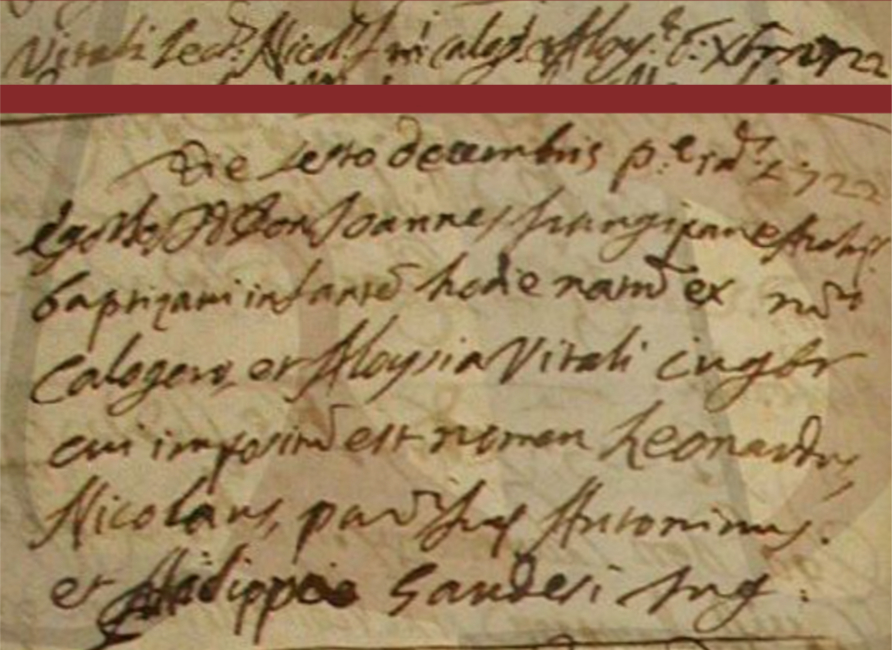 Vitali Leo: Nicol: f. m. calog: et Aloy: 6: Xbris 1722
Die sexto decembris p.e ind. 1722
Ego D. Don Joannes frangipane
baptizavi infantē hodie natū ex
Calogero, et Aloysia Vitali iugbr
cui impositū est nomen Leonardus
Nicolaus, patri fuer Antoninus
et Gaudesi iug: